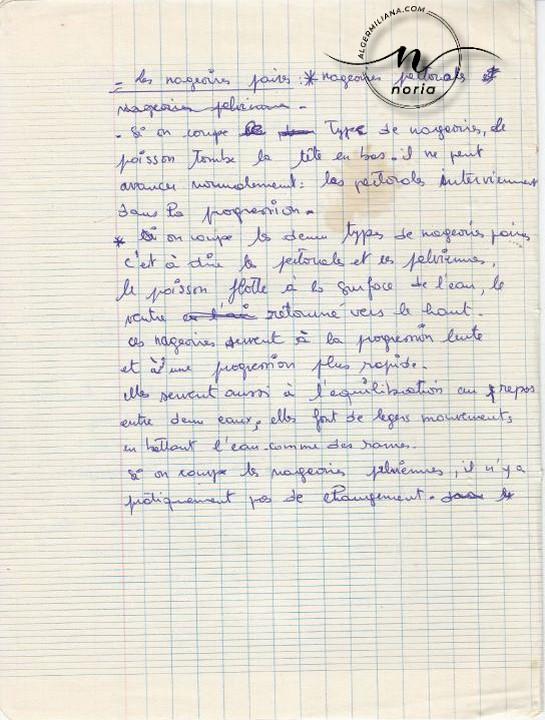 ALGERMILIANA.COM
n
noria
- Les nageoires paires : * nageoires pectorales et
nageoires pelviennes -
- Si on coupe le type de nageoires, le
poisson tombe la tête en bas - il ne peut
avancer normalement : les pectorales interviennent
dans la progression -
* Si on coupe les deux types de nageoires paires
c'est à dire les pectorales et les pelviennes,
le poisson flotte à la surface de l'eau, le
ventre retourné vers le haut -
ces nageoires servent à la progression lente
et à une progression plus rapide -
elles servent aussi à l'équilibration au repos
entre deux eaux, elles font de légers mouvements
en battant l'eau comme des rames -
Si on coupe les nageoires pelviennes, il n'y a
pratiquement pas de changement -